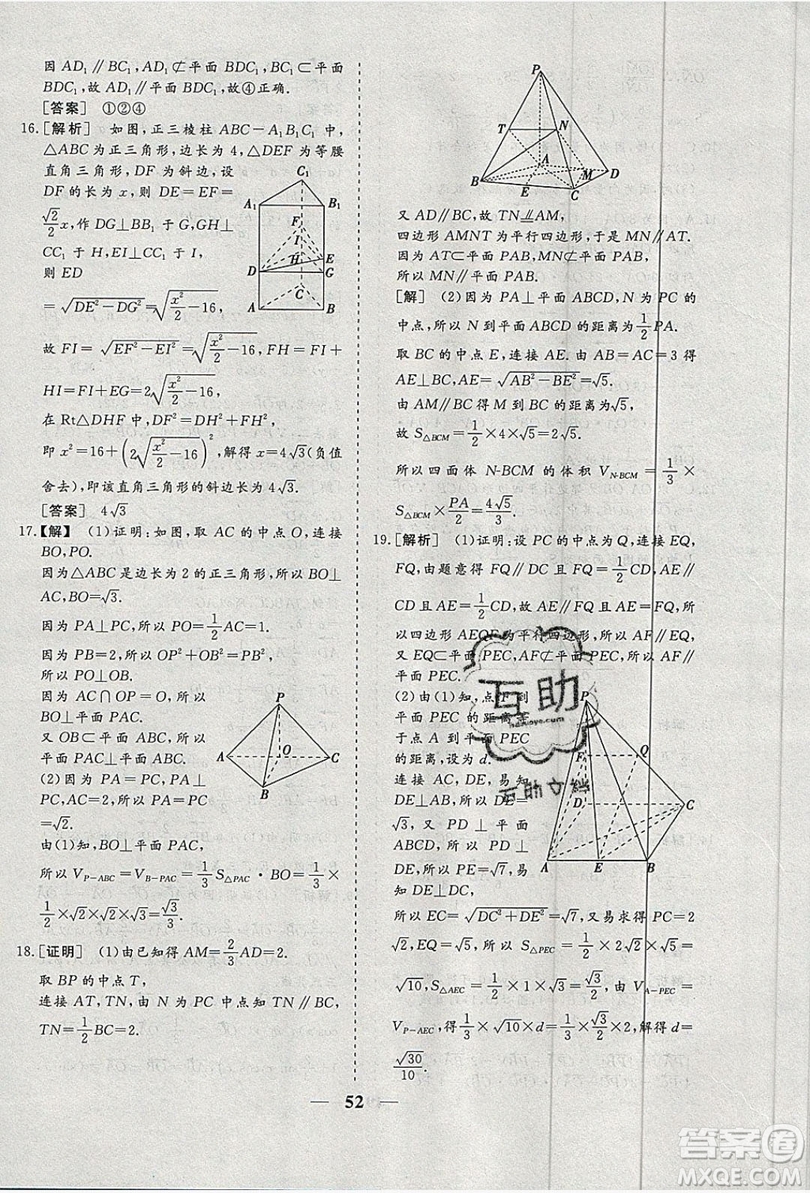 因 AD₁∥BC₁,AD₁⊄平面 BDC₁,BC₁⊂平面
BDC₁,故 AD₁∥平面 BDC₁,故④正确.
[答案] ①②④
16.[解析] 如图,正三棱柱 ABC-A₁B₁C₁ 中,
△ABC 为正三角形,边长为 4,△DEF 为等腰
直角三角形,DF 为斜边,设
DF 的长为 x,则 DE=EF=
√2/2 x,作 DG⊥BB₁ 于 G,GH⊥
CC₁ 于 H,EI⊥CC₁ 于 I,
则 EG
=√(DE²-DG²)=√(x²/2-16),
故 FI=√(EF²-EI²)=√(x²/2-16),FH=FI+
HI=FI+EG=2√(x²/2-16),
在 Rt△DHF 中,DF²=DH²+FH²,
即 x²=16+(2√(x²/2-16))²,解得 x=4√3(负值
舍去),即该直角三角形的斜边长为 4√3.
[答案] 4√3
17.[解] (1)证明:如图,取 AC 的中点 O,连接
BO,PO.
因为△ABC 是边长为 2 的正三角形,所以 BO⊥
AC,BO=√3.
因为 PA⊥PC,所以 PO=1/2 AC=1.
因为 PB=2,所以 OP²+OB²=PB²,
所以 PO⊥OB.
因为 AC∩OP=O,所以
BO⊥平面 PAC.
又 OB⊂平面 ABC,所以
平面 PAC⊥平面 ABC.
(2)因为 PA=PC,PA⊥
PC,AC=2,所以 PA=PC=
√2.
由(1)知,BO⊥平面 PAC,
所以 V_P-ABC=V_B-PAC=1/3 S△PAC·BO=1/3×
1/2×√2×√2×√3=√3/3.
18.[证明] (1)由已知得 AM=2/3 AD=2.
取 BP 的中点 T,
连接 AT,TN,由 N 为 PC 中点知 TN∥BC,
TN=1/2 BC=2.
C₁
A₁
B₁
F
I
E
H
D
G
C
A
B
P
A
O
C
B
P
T
N
A
M
D
B
E
C
又 AD∥BC,故 TN∥=AM,
四边形 AMNT 为平行四边形,于是 MN∥AT.
因为 AT⊂平面 PAB,MN⊄平面 PAB,
所以 MN∥平面 PAB.
[解] (2)因为 PA⊥平面 ABCD,N 为 PC 的
中点,所以 N 到平面 ABCD 的距离为 1/2 PA.
取 BC 的中点 E,连接 AE,由 AB=AC=3 得
AE⊥BC,AE=√(AB²-BE²)=√5.
由 AM∥BC 得 M 到 BC 的距离为√5,
故 S△BCM=1/2×4×√5=2√5.
所以四面体 N-BCM 的体积 V_N-BCM=1/3×
S△BCM×PA/2=4√5/3.
19.[解析] (1)证明:设 PC 的中点为 Q,连接 EQ,
FQ,由题意得 FQ∥DC 且 FQ=1/2 CD,AE∥
CD 且 AE=1/2 CD,故 AE∥FQ 且 AE=FQ,所
以四边形 AEQF 为平行四边形,所以 AF∥EQ,
又 EQ⊂平面 PEC,AF⊄平面 PEC,所以 AF∥
平面 PEC.
(2)由(1)知,点 F 到
平面 PEC 的距离等
于点 A 到平面 PEC
的距离,设为 d.
连接 AC,DE,易知
DE=√3,AC=2√3,
又 PD⊥平面
ABCD,所以 PD⊥
DE,所以 PE=√7,易知
DE⊥DC,
所以 EC=√(DC²+DE²)=√7,又易求 PC=
2√2,EQ=√5,所以 S△PEC=1/2×2√2×√5=
√10,S△AEC=1/2×1×√3=√3/2,由 V_A-PEC=
V_P-AEC,得 1/3×√10×d=1/3×√3/2×2,解得 d=
√30/10.
P
F
Q
D
C
A
E
B
互助
52
答案圈
MXQE.COM